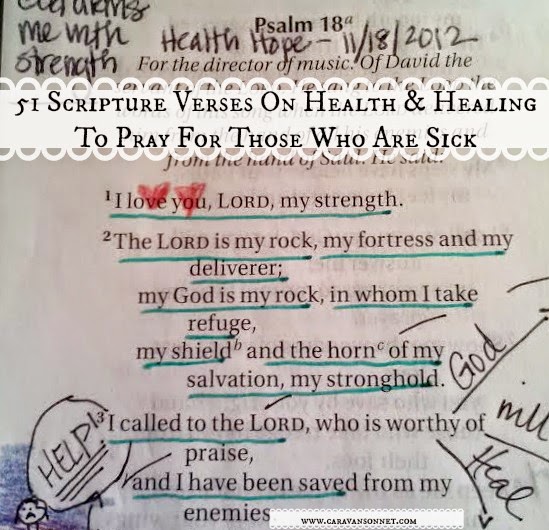 me with
strength
Psalm 18a
Health Hope - 11/18/2012
For the director of music. Of David the
51 Scripture Verses On Health & Healing
To Pray For Those Who Are Sick
from the hand of Saul. He said:
1 I love you, LORD, my strength.
2 The LORD is my rock, my fortress and my
deliverer;
my God is my rock, in whom I take
refuge,
my shield b and the horn c of my
salvation, my stronghold.
God
HELP!
3 I called to the LORD, who is worthy of
praise,
Heal
and I have been saved from my
enemies
www.caravansonnet.com